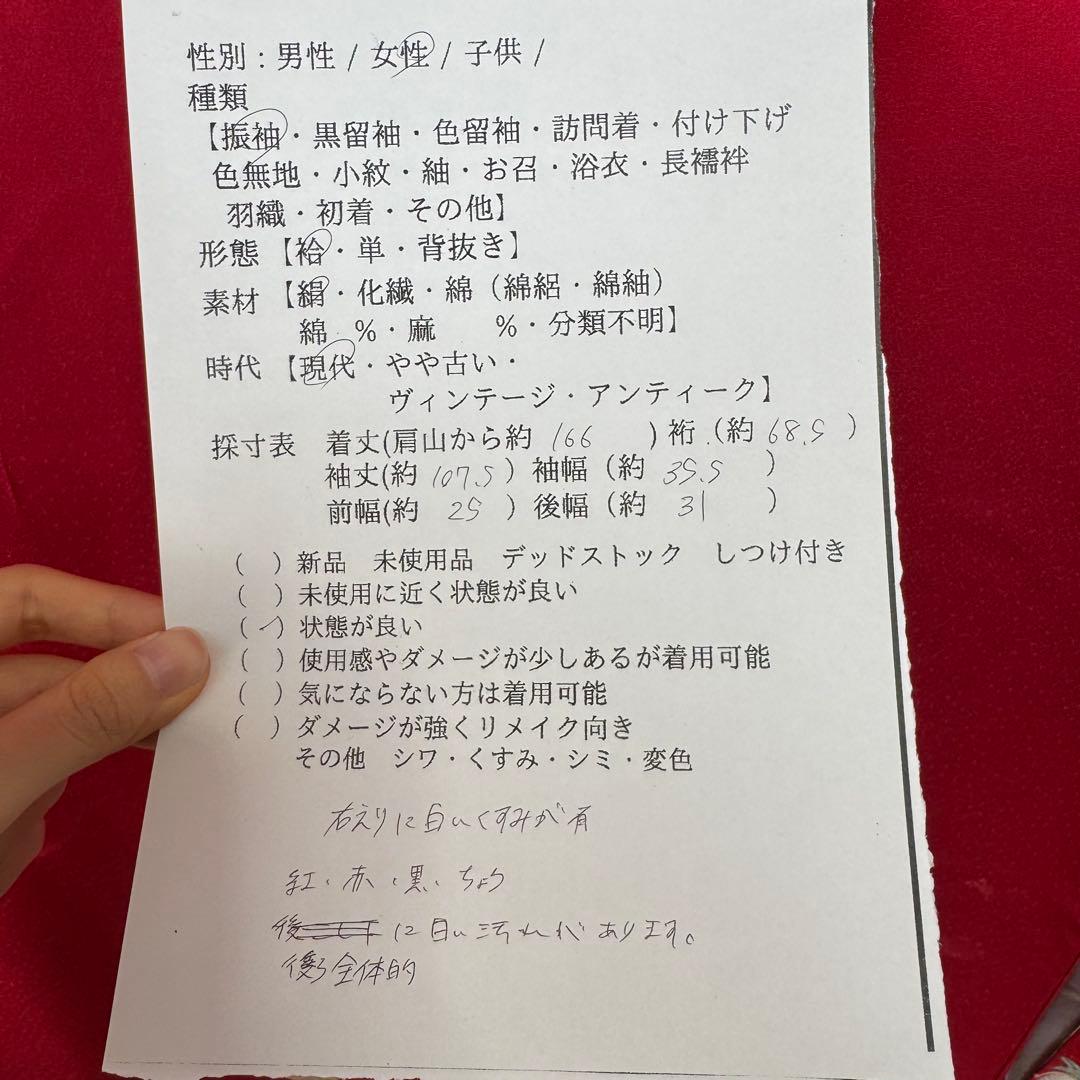 性別:男性 / 女性 / 子供 /
種類
【振袖・黒留袖・色留袖・訪問着・付け下げ
色無地・小紋・紬・お召・浴衣・長襦袢
羽織・初着・その他】
形態【袷・単・背抜き】
素材【絹・化繊・綿(綿絽・綿紬)
綿 %・麻 %・分類不明】
時代【現代・やや古い・
ヴィンテージ・アンティーク】
採寸表 着丈(肩山から約 166 ) 裄 (約 68.5 )
袖丈(約 107.5 ) 袖幅 (約 35.5 )
前幅(約 25 ) 後幅 (約 31 )
( ) 新品 未使用品 デッドストック しつけ付き
( ) 未使用に近く状態が良い
(✓) 状態が良い
( ) 使用感やダメージが少しあるが着用可能
( ) 気にならない方は着用可能
( ) ダメージが強くリメイク向き
その他 シワ・くすみ・シミ・変色
右えりに白いくすみが有
紅・赤・黒・ちょう
後 に白い汚れがあります。
後ろ全体的